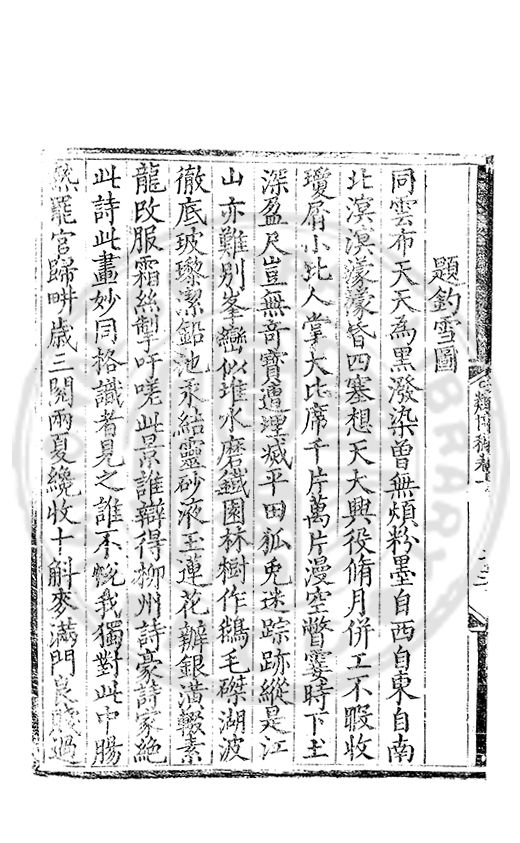 題釣雪圖
同雲布天天為黑潑染曾無煩粉墨自西自東自南
北溟溟濛濛皆四塞想天大興役脩月併工不暇收
瓊屑小比人掌大比席千片萬片漫空瞥霎時下土
深盈尺豈無奇寶遭埋滅平田狐兔迷踪跡縱是江
山亦難別峯巒似堆水磨鹽園林樹作鵝毛磔湖波
徹底玻瓈潔鉛池汞結靈砂液玉蓮花瓣銀潢輟素
龍改服霜絲掣吁嗟此景誰辯得柳州詩豪詩家絕
此詩此畫妙同格識者見之誰不悅我獨對此中腸
熱罷官歸畊歲三閱兩夏纔收十斛麥滿門良賤過
類博稿卷